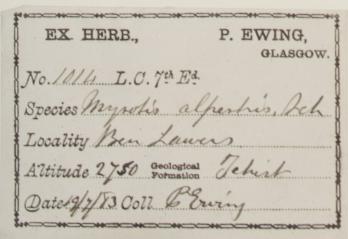 EX HERB., P. EWING,
GLASGOW.
No. 1014 L.C. 7th Ed.
Species Myosotis alpestris, Sch
Locality Ben Lawers
Altitude 2750 Geological Formation Schist
Date 19/7/83 Coll. P Ewing